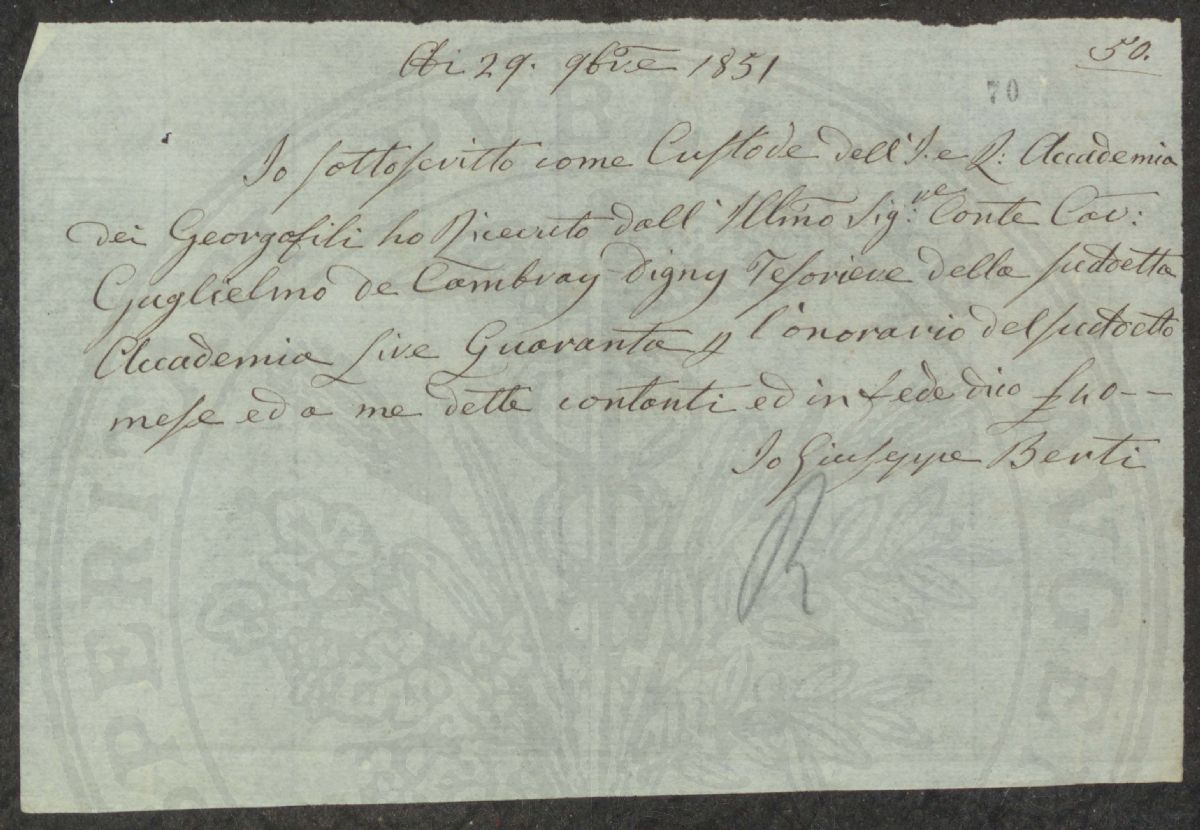 50.
Adi 29. 9bre 1851
70
Io sottoscritto come Custode dell'I. e R: Accademia
dei Georgofili ho Riceuto dall' Illmo Sig.re Conte Cav:
Guglielmo de Cambray Digny Tesoriere della sudoetta
Accademia Lire Quaranta p l'onorario del sudoetto
mese ed a me dette contanti ed in fede dico £ 40--
Io Giuseppe Berti
R